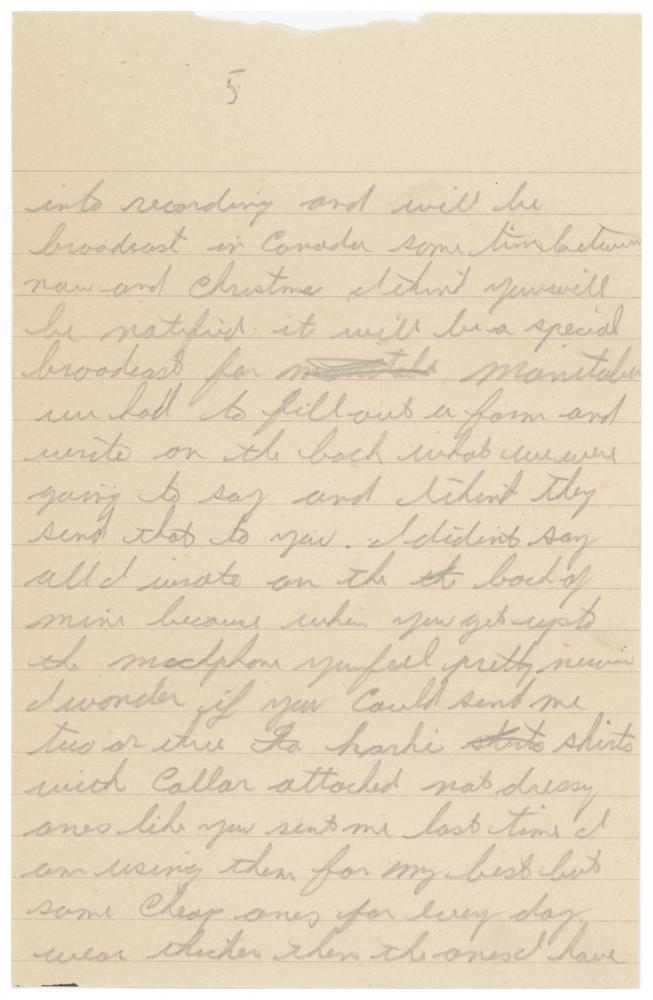 5
into recording and will be
broadcast in Canada some time between
now and Christmas I think you will
be notified it will be a special
broadcast for Manitoba
we had to fill out a form and
write on the back what we were
going to say and I think they
send that to you. I dident say
all I wrote on the the back of
mine because when you get up to
the you feel pretty nervis
I wonder if you could send me
two or three Ka harki shirts shirts
with Collar attached not dressy
ones like you sent me last time I
am using them for my best but
some Cheap ones for every day
wear thicker then the ones I have